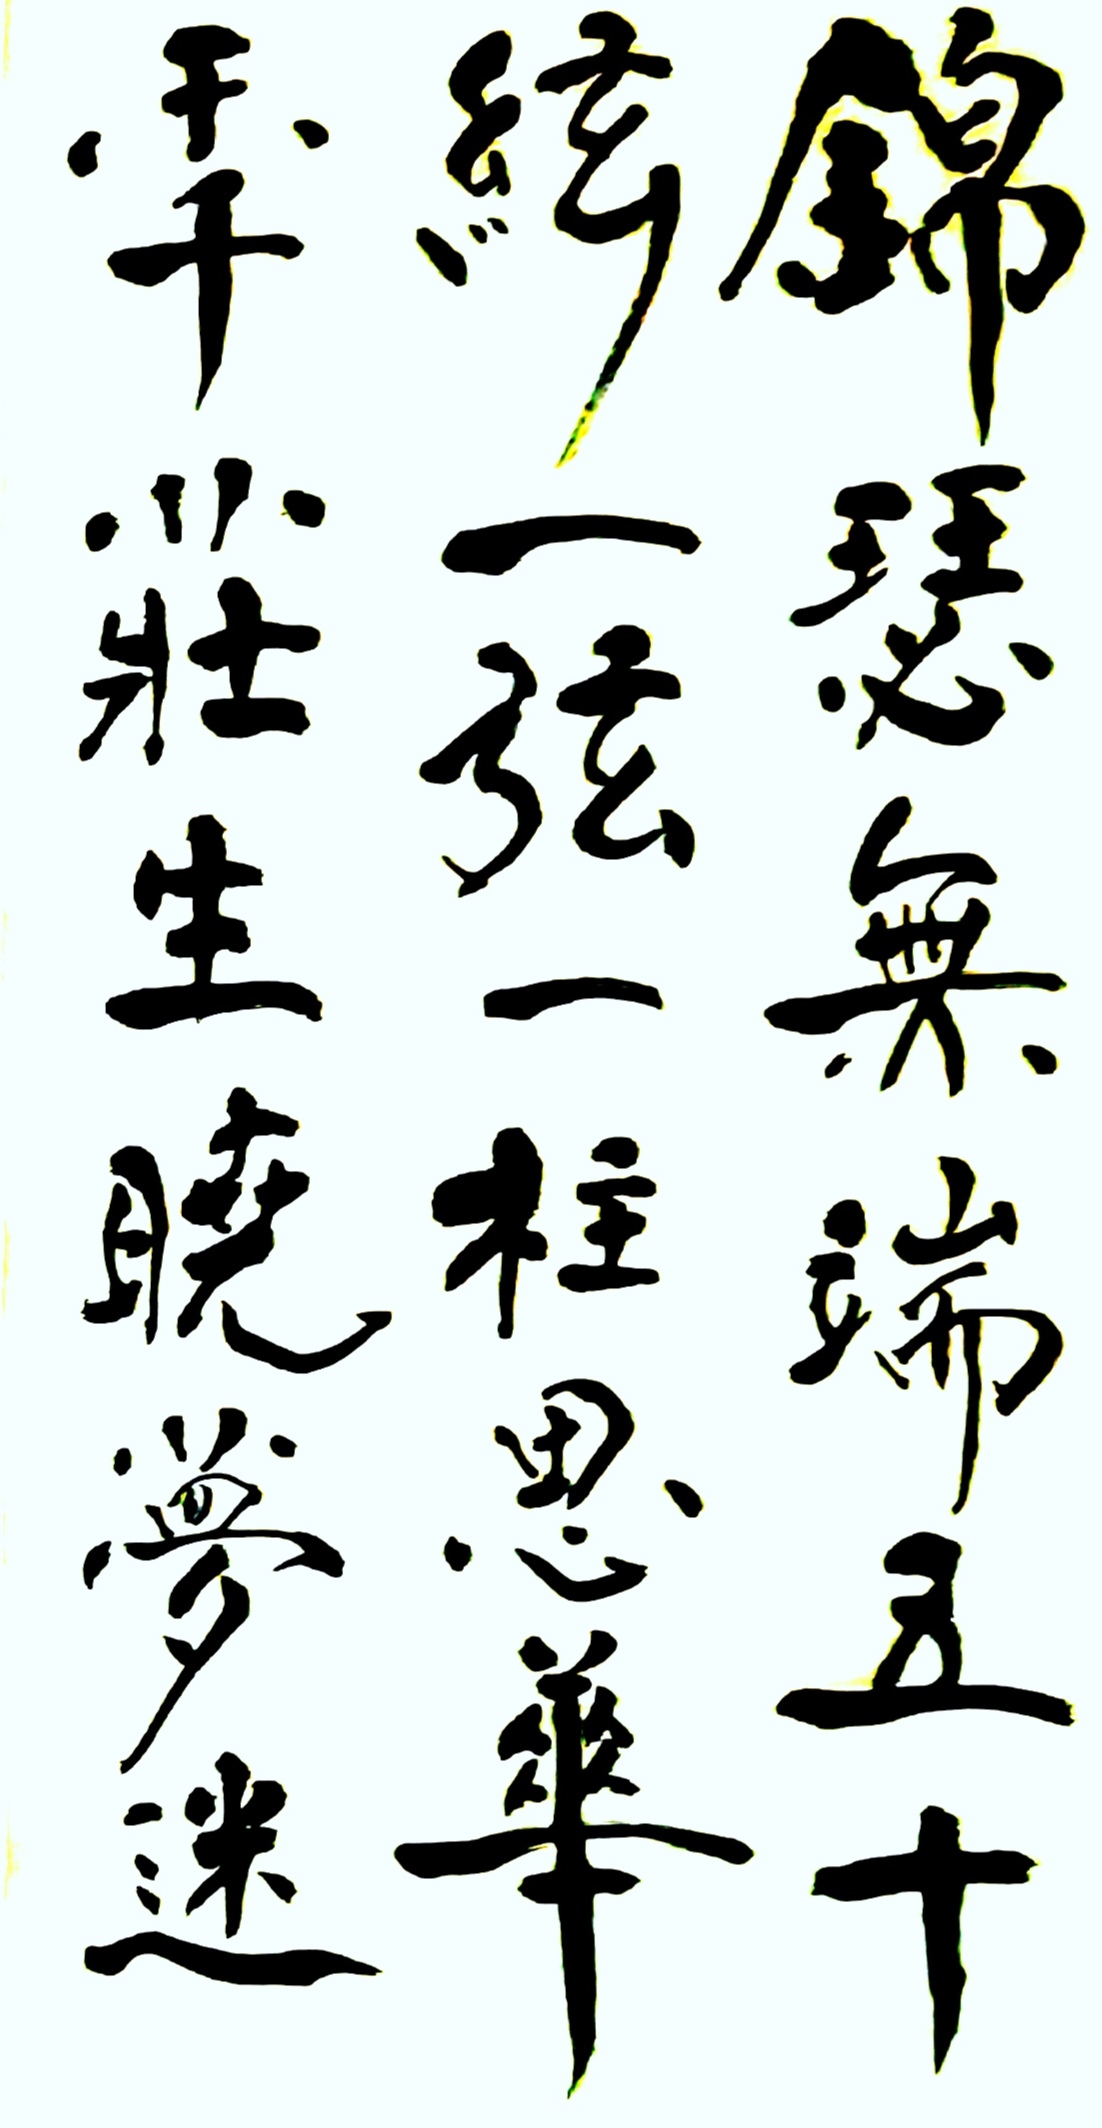 錦瑟無端五十
絃一弦一柱思華
年莊生曉夢迷